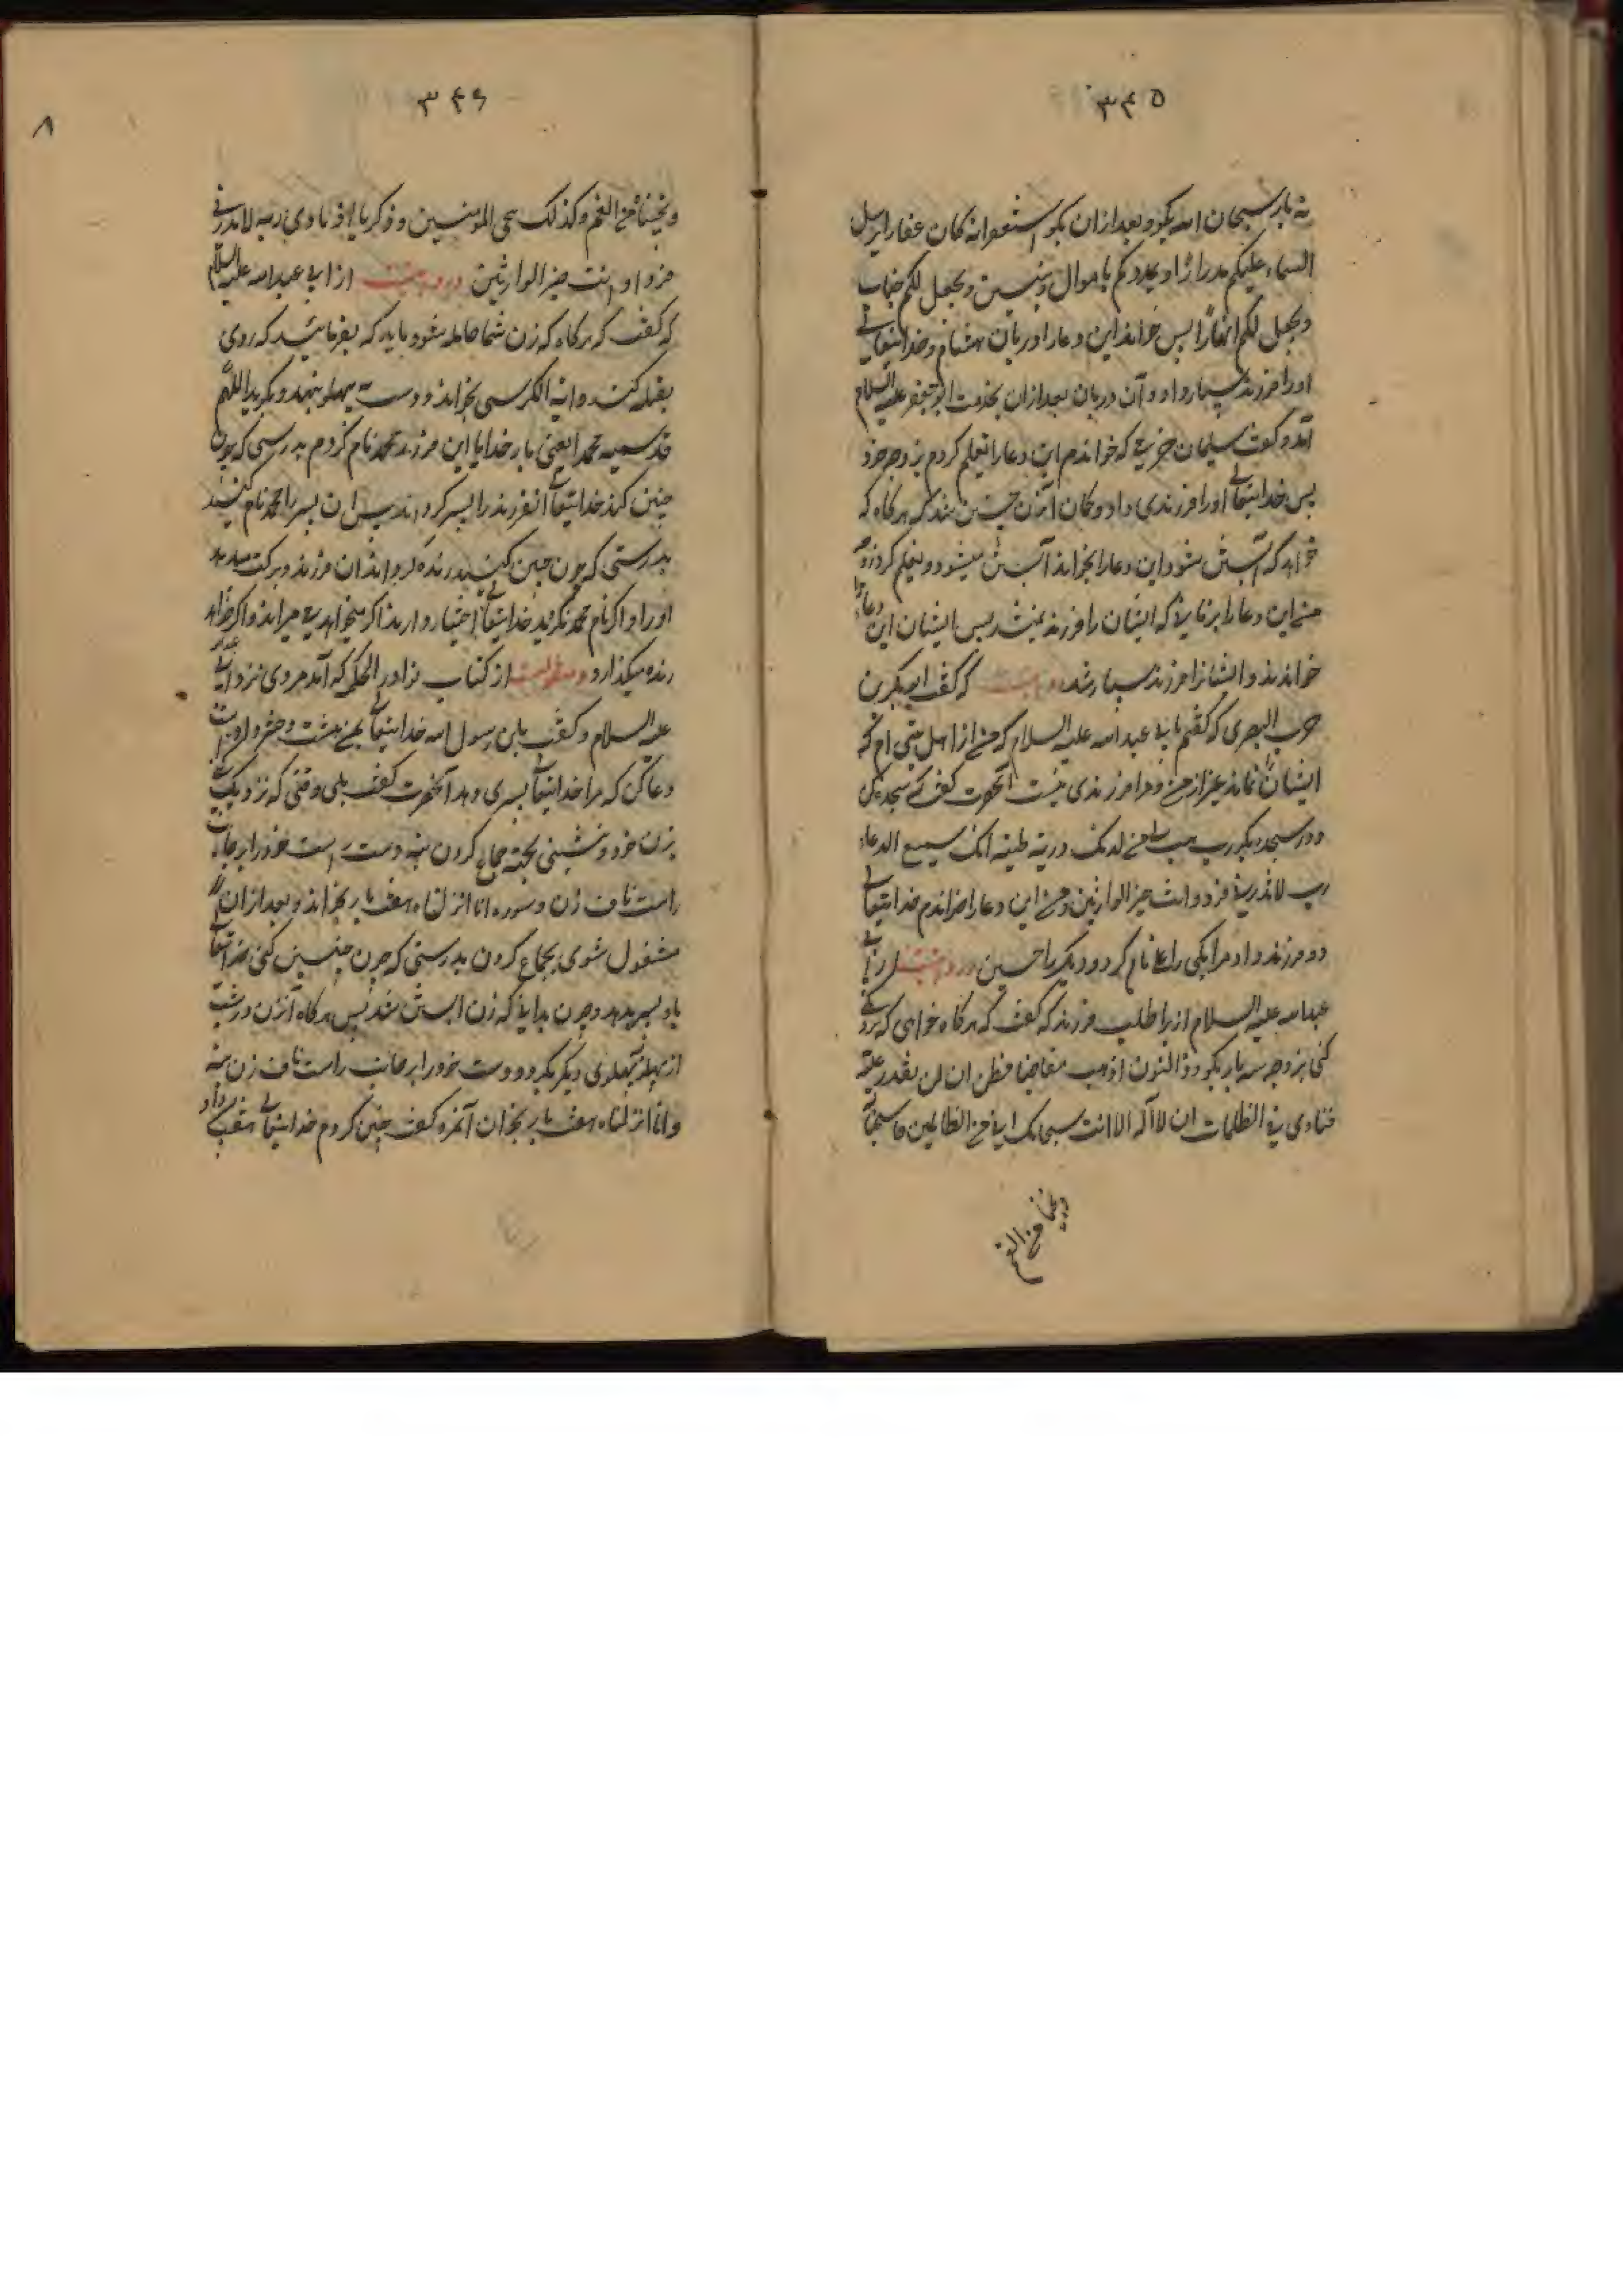 ۳۴۵
نه بار سبحان الله بگو و بعد از آن بگو استغفروا انه کان غفارا یرسل
السماء علیکم مدرارا و یمددکم باموال و بنین و یجعل لکم جنات
و یجعل لکم انهارا پس خواند این دعا را دربان هشام و خدایتعالی
او را فرزند بسیار داد و آن دربان بعد از آن بخدمت ابو جعفر علیه السلام
آمد و گفت سلیمان که خواندم این دعا را تعلیم کردم بزوجه خود
پس خدایتعالی او را فرزندی داد و گمان آنزن چنین شد که هرگاه که
خواهد که آبستن شود این دعا را بخواند آبستن میشود و تعلیم کردند
من این دعا را بر که ایشان را فرزند نمیشد پس ایشان این دعا را
خواندند و ایشانرا فرزند بسیار شد که گفت ابی بکر بن
حرب البصری که گفتم بابی عبد الله علیه السلام که من از اهل بیتی ام که
ایشان نماند بغیر از من و مرا فرزندی نیست آنحضرت گفت که سجده کن
و در سجده بگو رب هب لی من لدنک ذریة طیبة انک سمیع الدعاء
رب لا تذرنی فردا و انت خیر الوارثین و من این دعا را خواندم خدایتعالی
دو فرزند داد مرا یکی را علی نام کردم و دیگر را حسین و روایتست از ابی
عبد الله علیه السلام از برای طلب فرزند که گفت که هرگاه خواهی که نزدیکی
کنی بزوجه سه بار بگو و ذا النون اذ ذهب مغاضبا فظن ان لن نقدر علیه
فنادی فی الظلمات ان لا اله الا انت سبحانک انی من الظالمین فاستجبنا
و نجیناه من الغم
۳۴۶
۸
و نجیناه من الغم و کذلک ننجی المومنین و زکریا اذ نادی ربه لا تذرنی
فردا و انت خیر الوارثین و روایتست از ابی عبد الله علیه السلام
که گفت که هرگاه که زن شما حامله شود باید که بفرمائید که روی
بقبله کند و آیة الکرسی بخواند و دست به پهلو بنهد و بگوید اللهم
قد سمیته محمدا یعنی بار خدایا این فرزند را محمد نام کردم بدرستی که چون
چنین کند خدایتعالی آنفرزند را پسر گرداند پس آن پسر را محمد نام کنید
بدرستی که چون چنین کنید زنده گرداند آن فرزند و برکت میدهد
او را و اگر نام محمد نکنید خدایتعالی اختیار دارد اگر میخواهد میمیراند و اگر خواهد
زنده میگذارد و منقولست از کتاب نوادر الحکمة که آمد مردی نزد ابی عبد الله
علیه السلام و گفت یابن رسول الله خدایتعالی بمن هشت دختر داده است
دعا کن که مرا خدایتعالی پسری دهد آنحضرت گفت بلی وقتی که نزدیک
بزن خود بنشینی بجهت جماع کردن بنه دست راست خود را بر جانب
راست ناف زن و سوره انا انزلناه هفت بار بخواند و بعد از آن
مشغول شوی بجماع کردن بدرستی که چون چنین کنی خدایتعالی
بتو پسر بدهد و چون بدانی که زن آبستن شد پس هرگاه آنزن در شب
از پهلو بپهلوی دیگر بگردد دست خود را بر جانب راست ناف زن بنه
و انا انزلناه هفت بار بخوان آنمرد گفت چنین کردم خدایتعالی هفت پسر داد